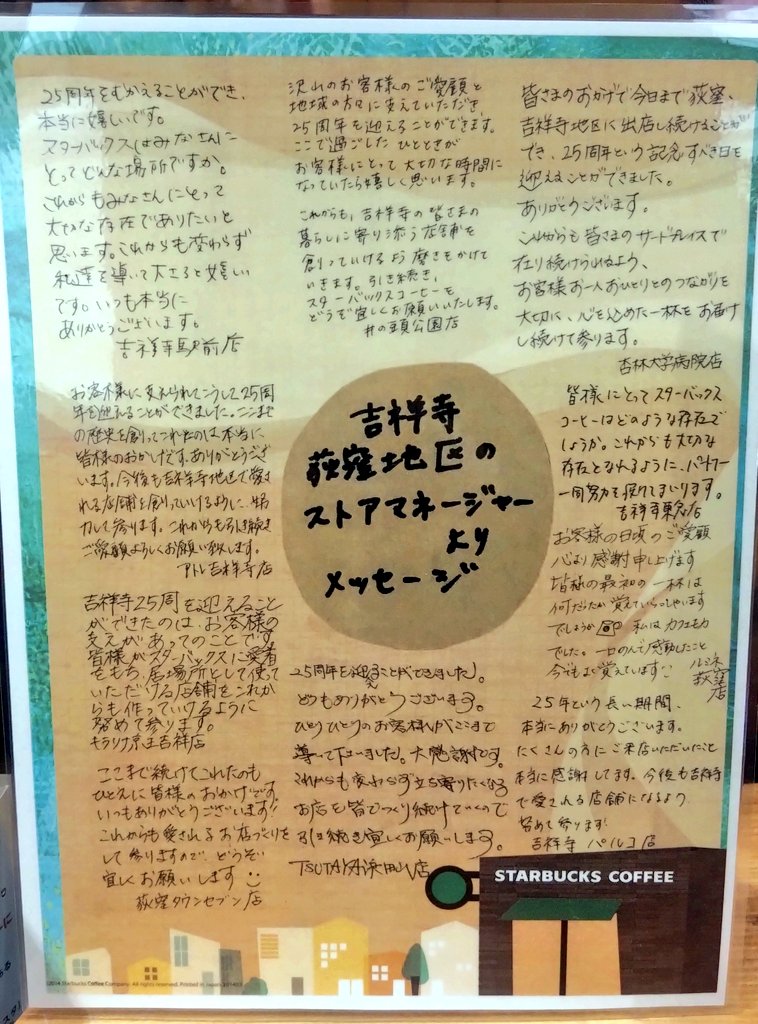 25周年をむかえることができ、
本当に嬉しいです。
スターバックスはみなさんに
とってどんな場所ですか。
これからもみなさんにとって
大切な存在でありたいと
思います。これからも変わらず
私達を導いて下さると嬉しい
です。いつも本当に
ありがとうございます。
吉祥寺駅前店
お客様に支えられてこうして25周
年を迎えることができました。ここまで
の歴史を創ってこれたのは本当に
皆様のおかげです。ありがとうござい
ます。今後も吉祥寺地区で愛さ
れる店舗を創っていけるように、努
力して参ります。これからも引き続き
ご愛顧よろしくお願い致します。
アトレ吉祥寺店
吉祥寺25周年を迎えること
ができたのは、お客様の
支えがあってのことです。
皆様がスターバックスに愛着
をもち、居場所として使って
いただける店舗をこれか
らも作っていけるように
努めて参ります。
キラリナ京王吉祥寺店
ここまで続けてこれたのも
ひとえに皆様のおかげです。
いつもありがとうございます!
これからも愛されるお店づくりを
して参りますので、どうぞ
宜しくお願いします
荻窪タウンセブン店
沢山のお客様のご愛顧と
地域の方々に支えていただき
25周年を迎えることができます。
ここで過ごしたひとときが
お客様にとって大切な時間に
なっていたら嬉しく思います。
これからも、吉祥寺の皆さまの
暮らしに寄り添う店舗を
創っていけるよう磨きをかけて
いきます。引き続き、
スターバックスコーヒーを
どうぞ宜しくお願いいたします。
井の頭公園店
吉祥寺
荻窪地区の
ストアマネージャー
より
メッセージ
25周年を迎えることができました。
どうもありがとうございます。
ひとりひとりのお客様がここまで
導いて下さいました。大感謝です。
これからも変わらず立ち寄りたくなる
お店を皆でつくり続けていくので
引き続き宜しくお願いします。
TSUTAYA浜田山店
皆さまのおかげで今日まで荻窪、
吉祥寺地区に出店し続けることが
でき、25周年という記念すべき日を
迎えることができました。
ありがとうございます。
これからも皆さまのサードプレイスで
在り続けられるよう、
お客様お一人おひとりとのつながりを
大切に、心を込めた一杯をお届け
し続けて参ります。
杏林大学病院店
皆様にとってスターバックス
コーヒーはどのような存在で
しょうか。これからも大切な
存在となれるように、パートナー
一同努力を続けてまいります。
吉祥寺東急店
お客様の日頃のご愛顧
心より感謝申し上げます
皆様の最初の一杯は
何だったか覚えていらっしゃいます
でしょうか 私はカフェモカ
でした。一口のんで感動したこと
今でもよく覚えています
ルミネ
荻窪
店
25年という長い期間、
本当にありがとうございます。
たくさんの方にご来店いただいたこと
本当に感謝してます。今後も吉祥寺
で愛される店舗になるよう
努めて参ります!
吉祥寺 パルコ店
STARBUCKS COFFEE
©2014 Starbucks Coffee Company. All rights reserved. Printed in Japan